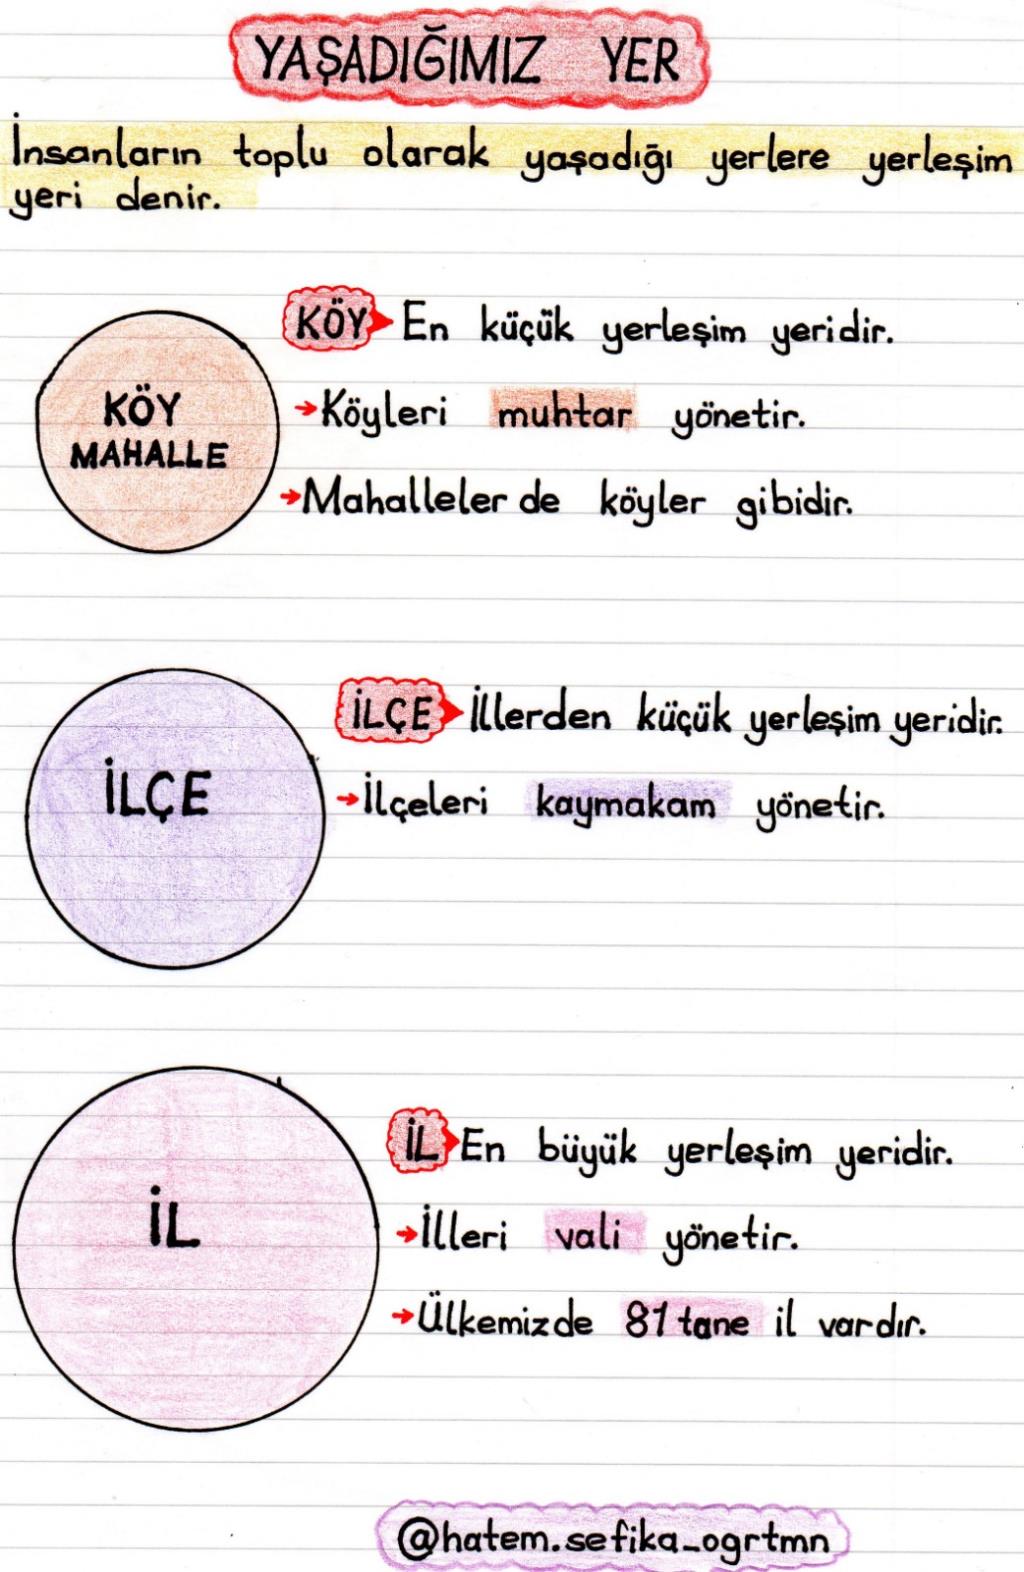 YAŞADIĞIMIZ YER
İnsanların toplu olarak yaşadığı yerlere yerleşim
yeri denir.
KÖY
MAHALLE
KÖY En küçük yerleşim yeridir.
→Köyleri muhtar yönetir.
→Mahalleler de köyler gibidir.
İLÇE
İLÇE İllerden küçük yerleşim yeridir.
→İlçeleri kaymakam yönetir.
İL
İL En büyük yerleşim yeridir.
→İlleri vali yönetir.
→Ülkemizde 81 tane il vardır.
@hatem.sefika_ogrtmn